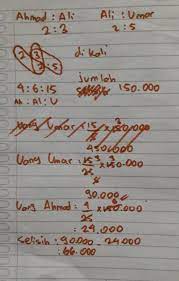 Ahmad : Ali    Ali : Umar
2 : 3    2 : 5
2 3
2 : 5
di kali
jumlah
4 : 6 : 15    150.000
Ah : Al : U
Uang Umar : 15 × 150.000
450.000
Uang Umar : 15/25 × 150.000
90.000
Uang Ahmad : 4/25 × 150.000
: 24.000
Selisih : 90.000 - 24.000
: 66.000